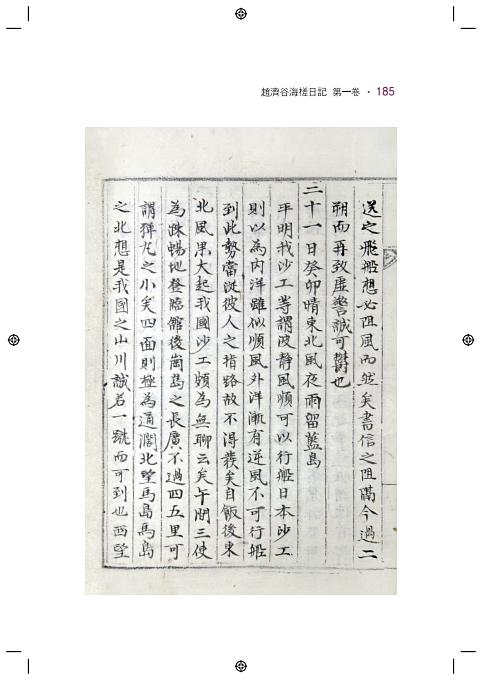 趙濟谷海槎日記 第一卷 · 185
送之飛船想必阻風而然矣書信之阻隔今過二
朔而再致虛警誠可欝也
二十一日癸卯晴東北風夜雨留藍島
平明我沙工等謂波靜風順可以行船日本沙工
則以為內洋雖似順風外洋漸有逆風不可行船
到此勢當從彼人之指路故不得發矣自飯後東
北風果大起我國沙工頗為無聊云矣午間三使
為踈暢地登臨館後崗島之長廣不過四五里可
謂彈丸之小矣四面則極為通濶北望馬島馬島
之北想是我國之山川誠若一跳而可到也西望